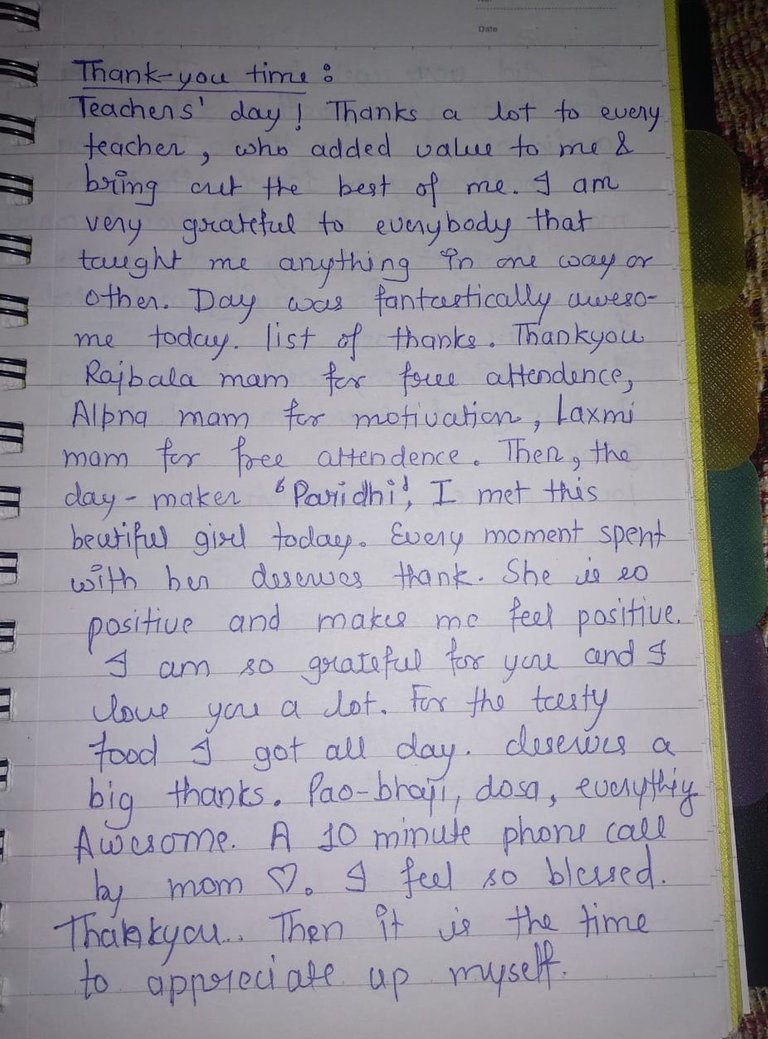 Date
Thank-you time :
Teachers' day! Thanks a lot to every
teacher, who added value to me &
bring out the best of me. I am
very grateful to everybody that
taught me anything in one way or
other. Day was fantastically aweso-
me today. list of thanks. Thankyou
Rajbala mam for free attendence,
Alpna mam for motivation, Laxmi
mam for free attendence. Then, the
day-maker 'Paridhi', I met this
beutiful girl today. Every moment spent
with her deserves thank. She is so
positive and makes me feel positive.
I am so grateful for you and I
love you a lot. For the tasty
food I got all day. deserves a
big thanks. Pao-bhaji, dosa, everythig
Awesome. A 10 minute phone call
by mom ♡. I feel so blessed.
Thankyou.. Then it is the time
to appreciate up myself.